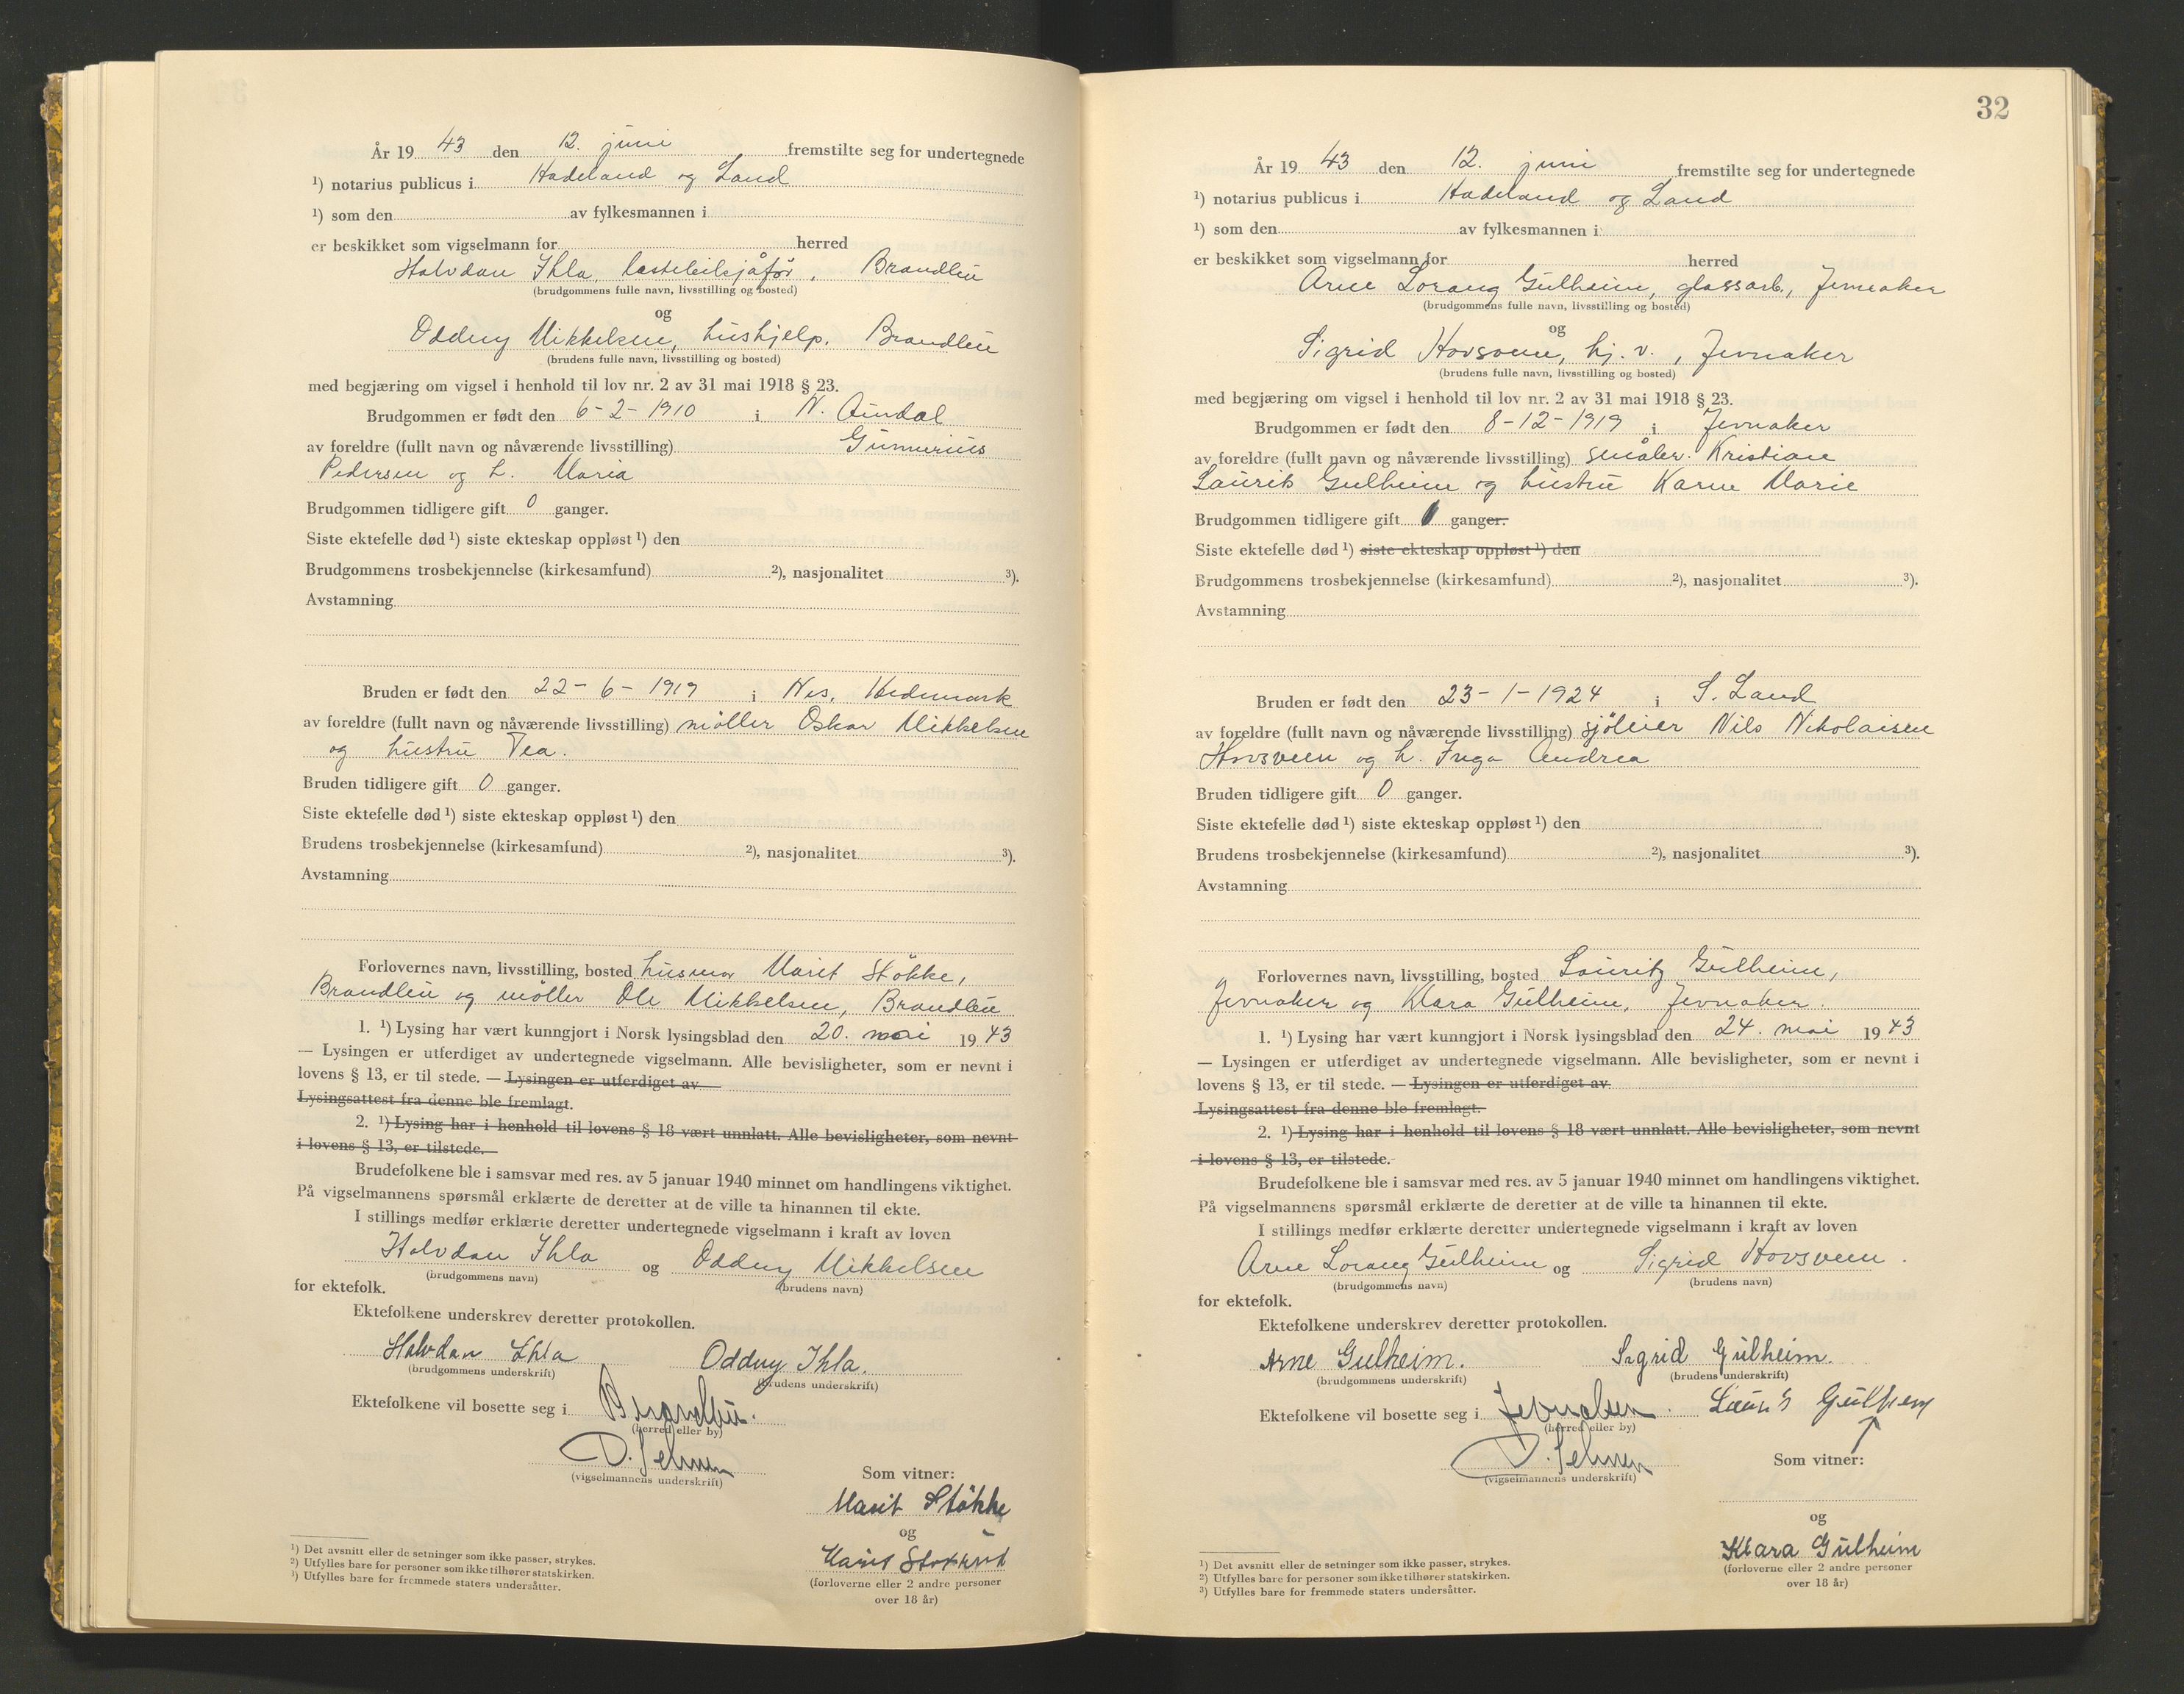 År 19 43 den 12. juni fremstilte seg for undertegnede
¹) notarius publicus i Hadeland og Land
¹) som den av fylkesmannen i
er beskikket som vigselmann for herred
Halvdan Ihla, lastebilsjåfør, Brandbu
(brudgommens fulle navn, livsstilling og bosted)
og
Oddny Mikkelsen, hushjelp, Brandbu
(brudens fulle navn, livsstilling og bosted)
med begjæring om vigsel i henhold til lov nr. 2 av 31 mai 1918 § 23.
Brudgommen er født den 6-2-1910 i N. Aurdal
av foreldre (fullt navn og nåværende livsstilling) Gunnerius
Pedersen og h. Maria
Brudgommen tidligere gift 0 ganger.
Siste ektefelle død ¹) siste ekteskap oppløst ¹) den
Brudgommens trosbekjennelse (kirkesamfund) ²), nasjonalitet ³).
Avstamning
Bruden er født den 22-6-1919 i Nes, Hedemark
av foreldre (fullt navn og nåværende livsstilling) møller Oskar Mikkelsen
og hustru Tea.
Bruden tidligere gift 0 ganger.
Siste ektefelle død ¹) siste ekteskap oppløst ¹) den
Brudens trosbekjennelse (kirkesamfund) ²), nasjonalitet ³).
Avstamning
Forlovernes navn, livsstilling, bosted husmor Marit Støkke,
Brandbu og møller Ole Mikkelsen, Brandbu
1. ¹) Lysing har vært kunngjort i Norsk lysingsblad den 20. mai 1943
— Lysingen er utferdiget av undertegnede vigselmann. Alle bevisligheter, som er nevnt i
lovens § 13, er til stede. — Lysingen er utferdiget av
Lysingsattest fra denne ble fremlagt.
2. ¹) Lysing har i henhold til lovens § 18 vært unnlatt. Alle bevisligheter, som nevnt
i lovens § 13, er tilstede.
Brudefolkene ble i samsvar med res. av 5 januar 1940 minnet om handlingens viktighet.
På vigselmannens spørsmål erklærte de deretter at de ville ta hinannen til ekte.
I stillings medfør erklærte deretter undertegnede vigselmann i kraft av loven
Halvdan Ihla og Oddny Mikkelsen
(brudgommens navn) (brudens navn)
for ektefolk.
Ektefolkene underskrev deretter protokollen.
Halvdan Ihla Oddny Ihla.
(brudgommens underskrift) (brudens underskrift)
Ektefolkene vil bosette seg i Brandbu.
(herred eller by)
(vigselmannens underskrift)
Som vitner:
Marit Støkke
og
(forloverne eller 2 andre personer
over 18 år)
¹) Det avsnitt eller de setninger som ikke passer, strykes.
²) Utfylles bare for personer som ikke tilhører statskirken.
³) Utfylles bare for fremmede staters undersåtter.
32
År 19 43 den 12. juni fremstilte seg for undertegnede
¹) notarius publicus i Hadeland og Land
¹) som den av fylkesmannen i
er beskikket som vigselmann for herred
Arne Lorang Gulheim, glassarb., Jevnaker
(brudgommens fulle navn, livsstilling og bosted)
og
Sigrid Hovsveen, hj. v., Jevnaker
(brudens fulle navn, livsstilling og bosted)
med begjæring om vigsel i henhold til lov nr. 2 av 31 mai 1918 § 23.
Brudgommen er født den 8-12-1919 i Jevnaker
av foreldre (fullt navn og nåværende livsstilling) småbr. Kristian
Laurits Gulheim og hustru Karen Marie
Brudgommen tidligere gift ganger.
Siste ektefelle død ¹) siste ekteskap oppløst ¹) den
Brudgommens trosbekjennelse (kirkesamfund) ²), nasjonalitet ³).
Avstamning
Bruden er født den 23-1-1924 i S. Land
av foreldre (fullt navn og nåværende livsstilling) sjøleier Nils Nikolaisen
Hovsveen og h. Inga Andrea
Bruden tidligere gift 0 ganger.
Siste ektefelle død ¹) siste ekteskap oppløst ¹) den
Brudens trosbekjennelse (kirkesamfund) ²), nasjonalitet ³).
Avstamning
Forlovernes navn, livsstilling, bosted Lauritz Gulheim,
Jevnaker og Klara Gulheim, Jevnaker.
1. ¹) Lysing har vært kunngjort i Norsk lysingsblad den 24. mai 1943
— Lysingen er utferdiget av undertegnede vigselmann. Alle bevisligheter, som er nevnt i
lovens § 13, er til stede. — Lysingen er utferdiget av
Lysingsattest fra denne ble fremlagt.
2. ¹) Lysing har i henhold til lovens § 18 vært unnlatt. Alle bevisligheter, som nevnt
i lovens § 13, er tilstede.
Brudefolkene ble i samsvar med res. av 5 januar 1940 minnet om handlingens viktighet.
På vigselmannens spørsmål erklærte de deretter at de ville ta hinannen til ekte.
I stillings medfør erklærte deretter undertegnede vigselmann i kraft av loven
Arne Lorang Gulheim og Sigrid Hovsveen.
(brudgommens navn) (brudens navn)
for ektefolk.
Ektefolkene underskrev deretter protokollen.
Arne Gulheim. Sigrid Gulheim.
(brudgommens underskrift) (brudens underskrift)
Ektefolkene vil bosette seg i Jevnaker.
(herred eller by)
(vigselmannens underskrift)
Som vitner:
og
Klara Gulheim
(forloverne eller 2 andre personer
over 18 år)
¹) Det avsnitt eller de setninger som ikke passer, strykes.
²) Utfylles bare for personer som ikke tilhører statskirken.
³) Utfylles bare for fremmede staters undersåtter.